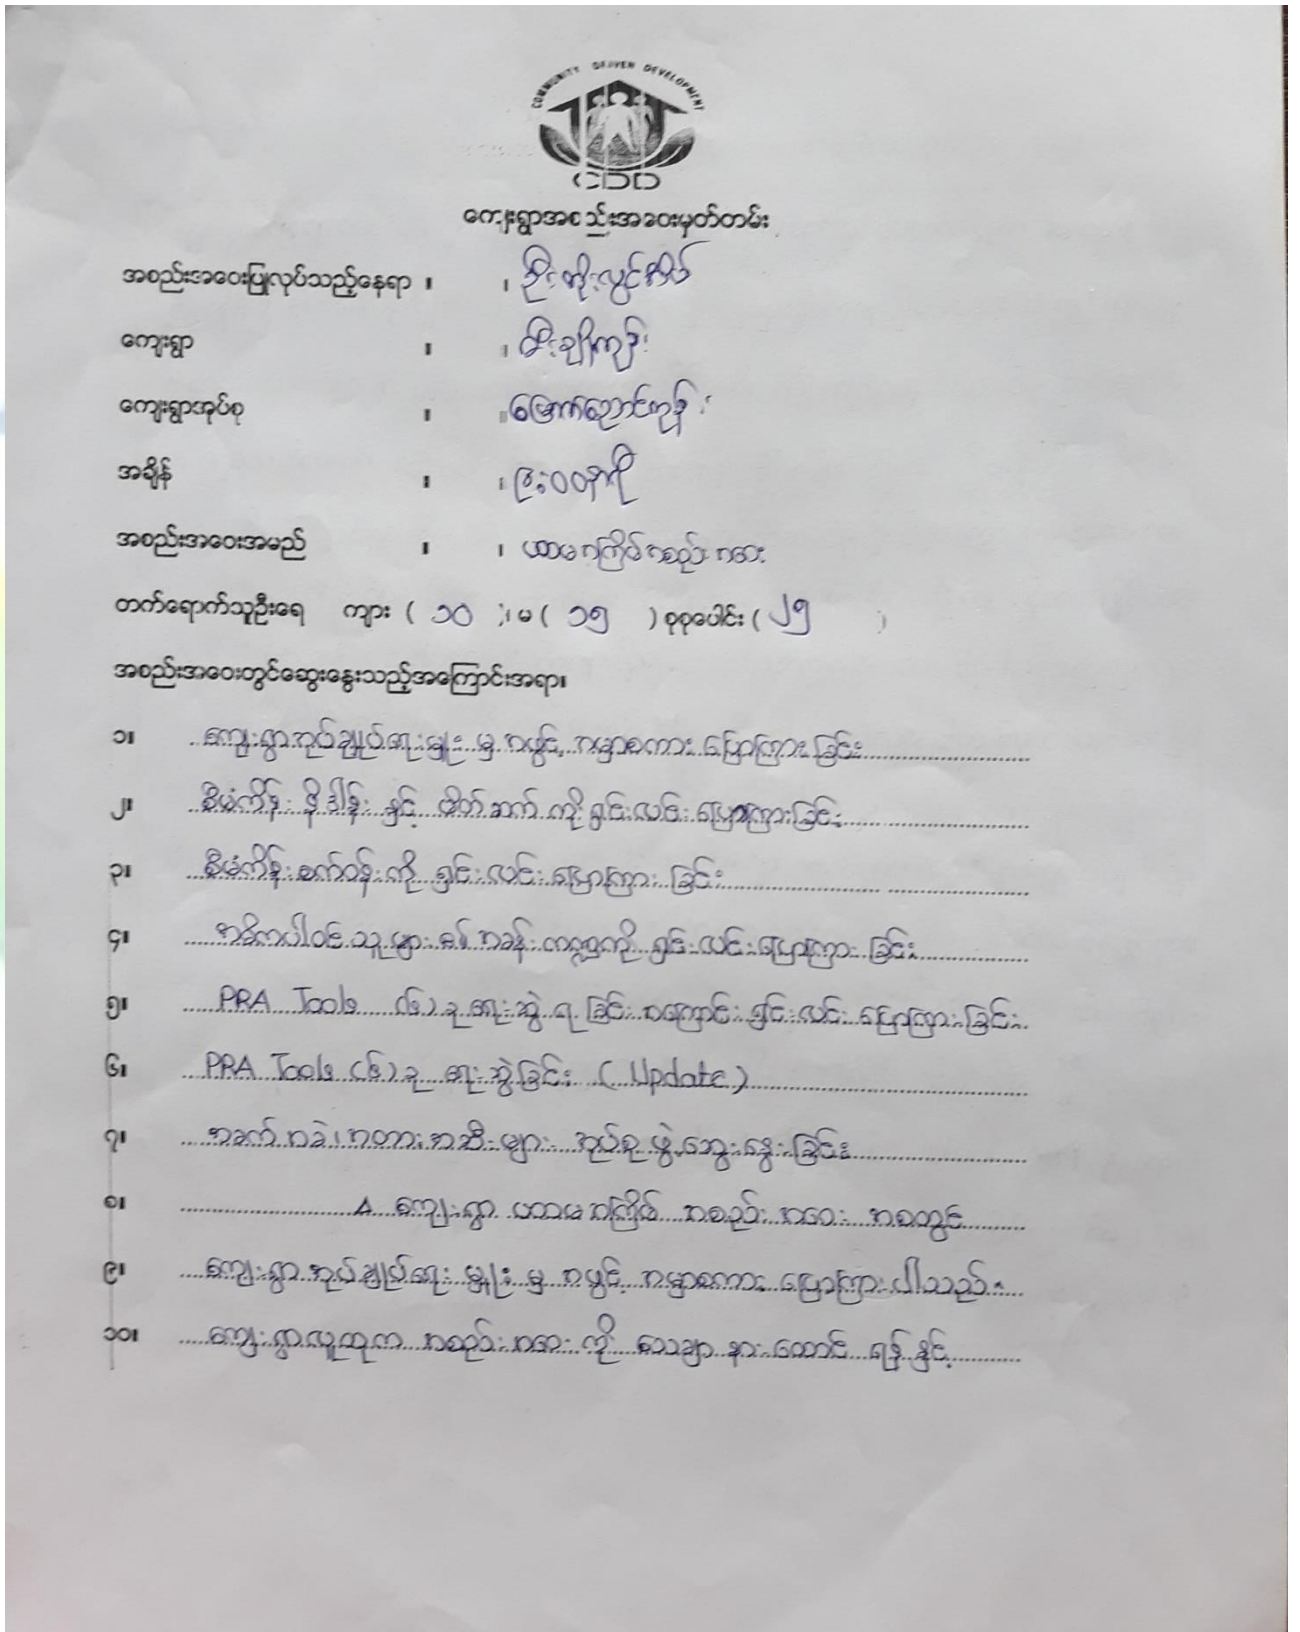 COMMUNITY DRIVEN DEVELOPMENT
CDD
ကျေးရွာအစည်းအဝေးမှတ်တမ်း
အစည်းအဝေးပြုလုပ်သည့်နေရာ ။ ၊ ဦးတိုးလွင်အိမ်
ကျေးရွာ ။ ၊ မီးချိုကုန်း
ကျေးရွာအုပ်စု ။ ။ မြောက်ညောင်ကုန်း
အချိန် ။ ၊ ၉:၀၀နာရီ
အစည်းအဝေးအမည် ။ ၊ ပထမအကြိမ်အစည်းအဝေး
တက်ရောက်သူဦးရေ ကျား ( ၁၀ )၊ မ ( ၁၅ ) စုစုပေါင်း ( ၂၅ )
အစည်းအဝေးတွင်ဆွေးနွေးသည့်အကြောင်းအရာ။
၁။ ကျေးရွာအုပ်ချုပ်ရေးမှူး မှ အဖွင့် အမှာစကား ပြောကြားခြင်း
၂။ စီမံကိန်း နိဒါန်း နှင့် ဗိတ်ဆက် ကို ရှင်းလင်း ပြောကြားခြင်း
၃။ စီမံကိန်းစက်ဝန်းကို ရှင်းလင်း ပြောကြားခြင်း
၄။ အဓိကပါဝင်သူများ၏ အခန်းကဏ္ဍကို ရှင်းလင်းပြောကြားခြင်း
၅။ PRA Tools (၆) ခု ရေးဆွဲ ရ ခြင်း အကြောင်း ရှင်းလင်း ပြောကြားခြင်း
၆။ PRA Tools (၆) ခု ရေးဆွဲခြင်း ( Update )
၇။ အခက်အခဲ၊ အတားအဆီးများ အုပ်စုဖွဲ့ဆွေးနွေးခြင်း
၈။ △ ကျေးရွာ ပထမအကြိမ် အစည်းအဝေး အစတွင်
၉။ ကျေးရွာအုပ်ချုပ်ရေးမှူး မှ အဖွင့် အမှာစကား ပြောကြားပါသည်။
၁၀။ ကျေးရွာလူထုက အစည်းအဝေးကို သေချာ နားထောင် ရန် နှင့်